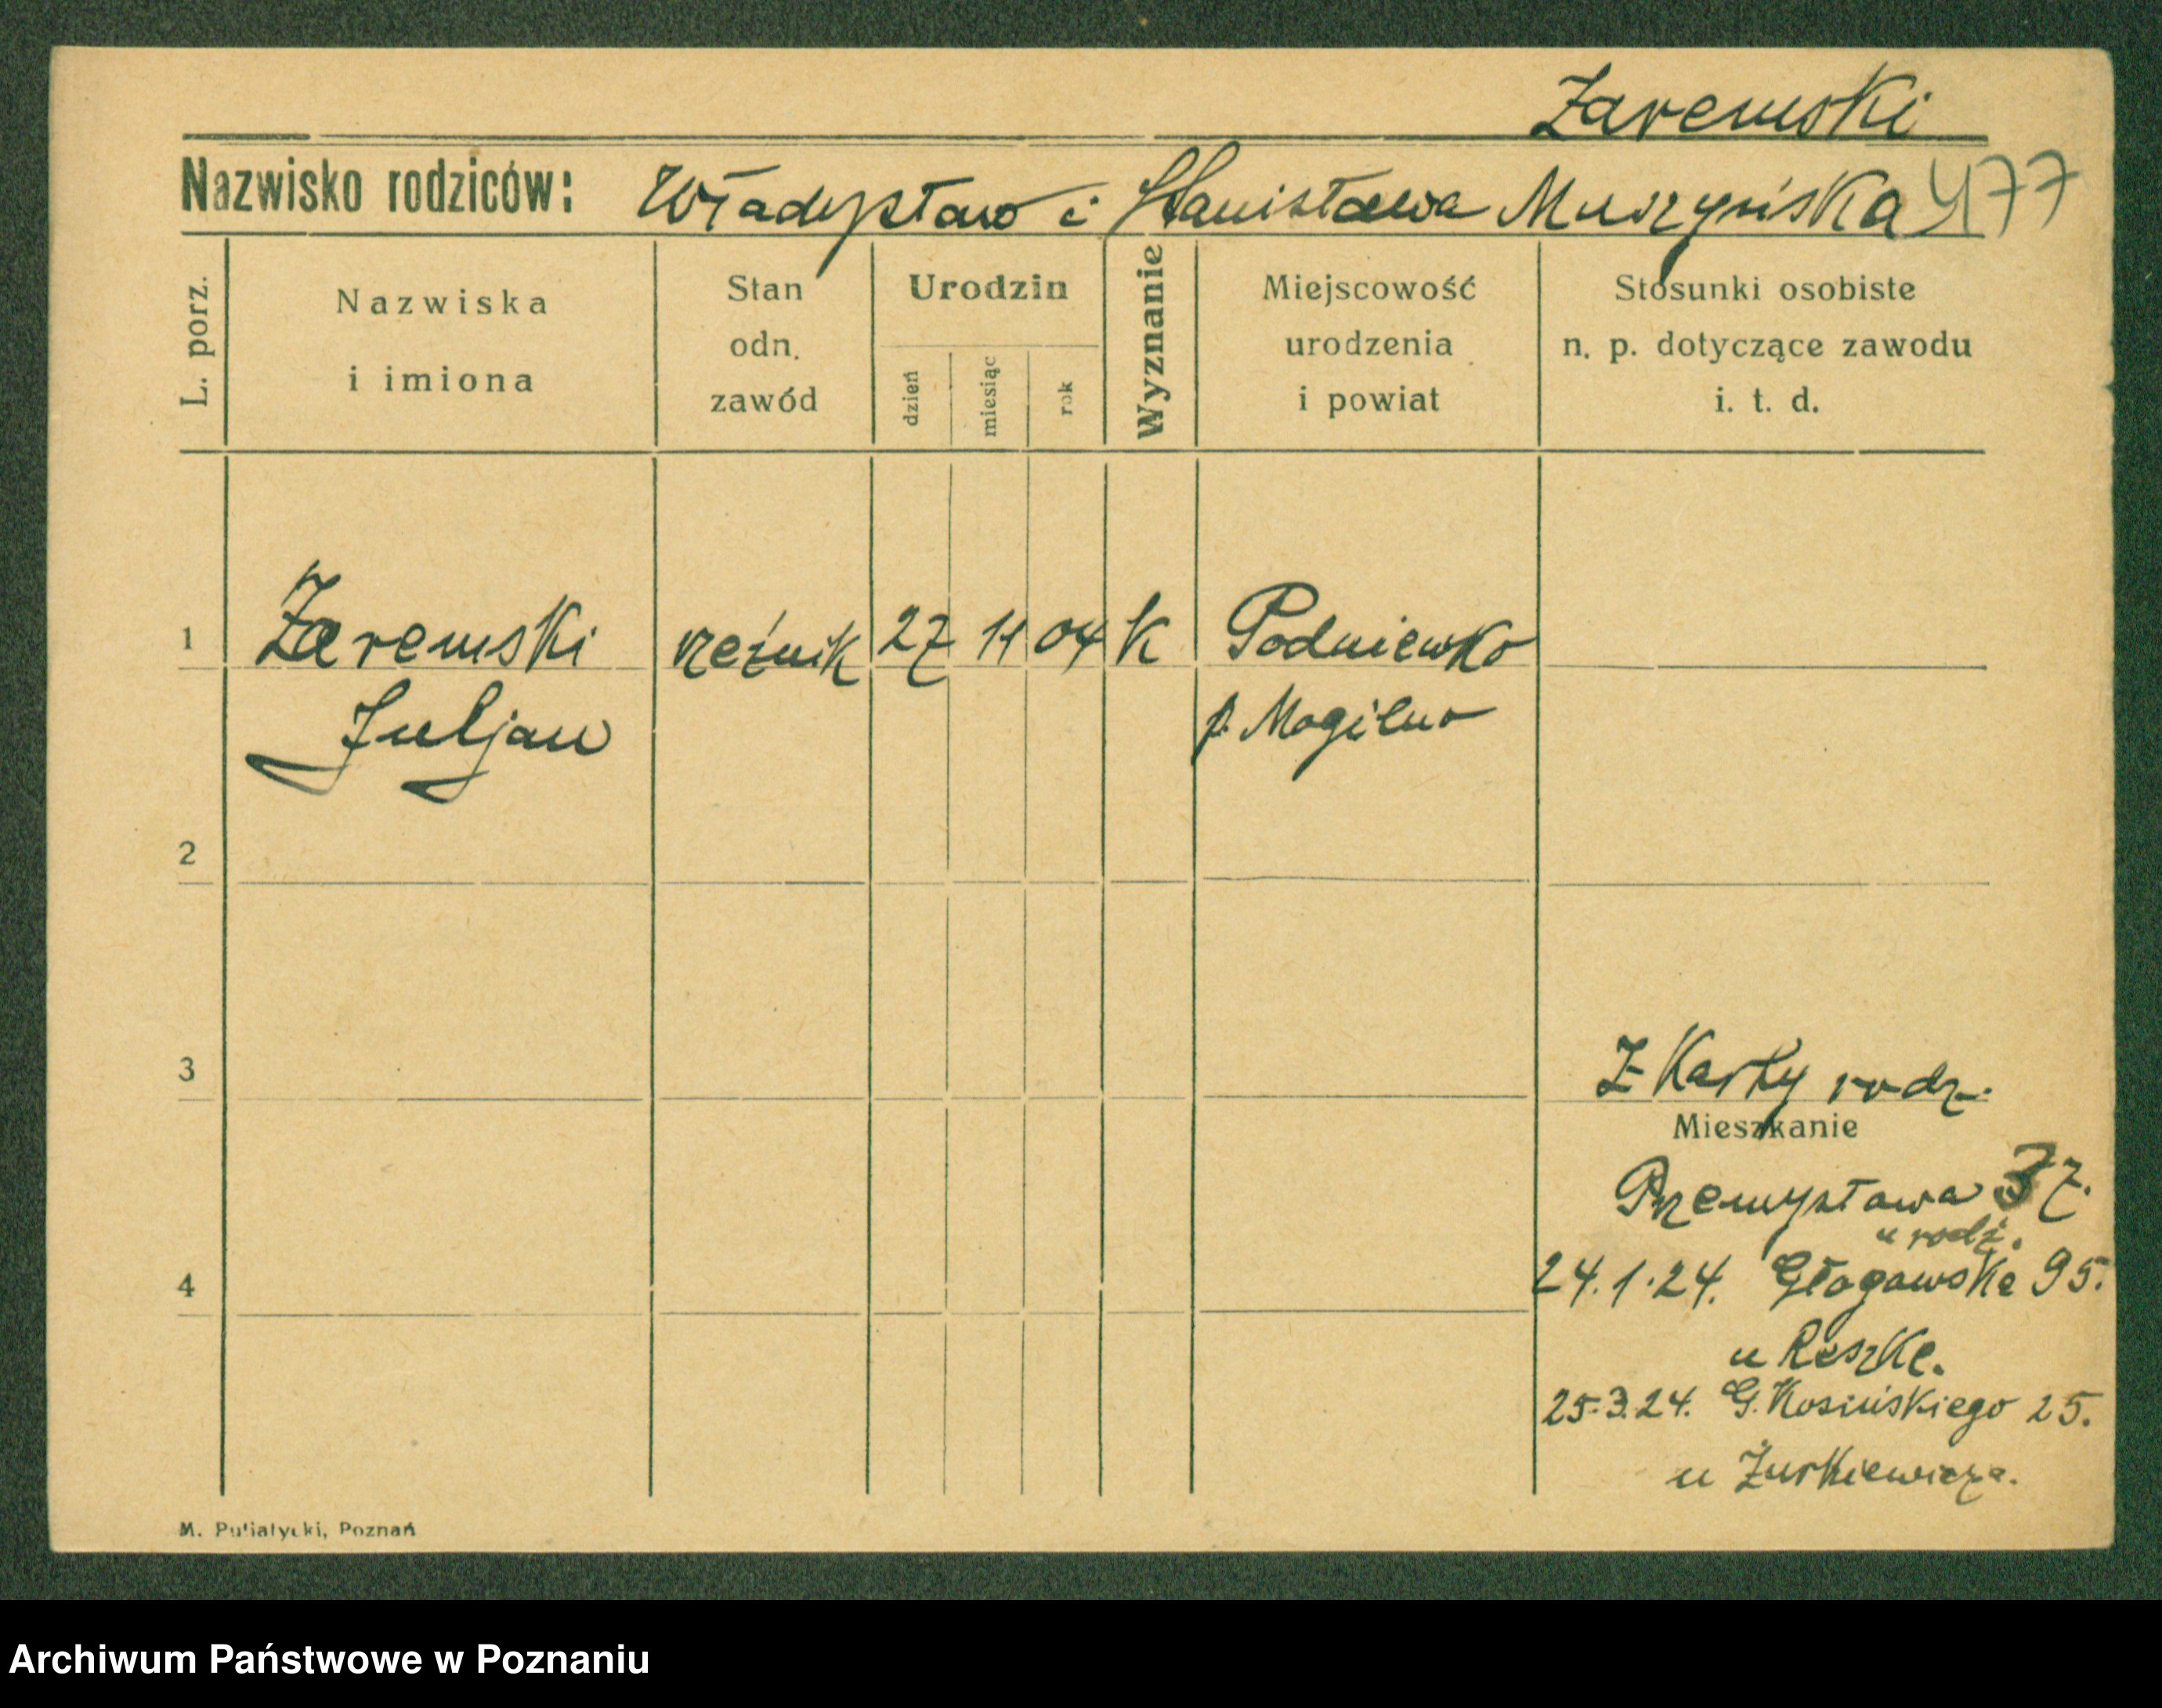 Zaremski
Nazwisko rodziców: Władysław i Stanisława Muszyńska 477
L. porz.
Nazwiska
i imiona
Stan
odn.
zawód
Urodzin
dzień
miesiąc
rok
Wyznanie
Miejscowość
urodzenia
i powiat
Stosunki osobiste
n. p. dotyczące zawodu
i. t. d.
1 Zaremski rzeźnik 27 11 04 K Podniewko
Juljan p. Mogilno
2
3
Z Karty rodz.
Mieszkanie
Przemysława 37.
u rodz.
4
24.1.24. Głogowska 95.
u Reszke.
25.3.24. G. Kosińskiego 25.
u Żurkiewicza.
M. Putiatycki, Poznań
Archiwum Państwowe w Poznaniu